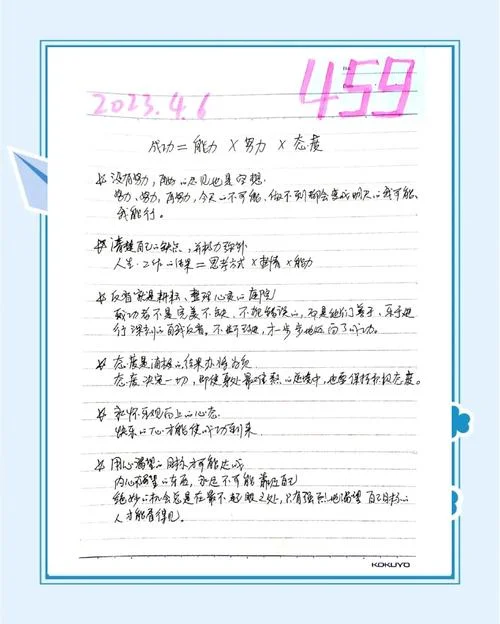 2023.4.6
459
成功=能力×努力×态度
没有努力,再的远见也是空想.
努力、努力,再努力,今天的不可能、做不到都会变成明天的我可能、
我能行。
清楚自己的缺点,并极力弥补
人生·工作的结果=思考方式×热情×能力
反省就是耕耘、整理心灵的庭院
成功者不是完美不缺、不犯错误的,而是他们善于、乐于进
行深刻的自我反省。不断改进,才一步步地迈向了成功。
态度是消极的结果亦将为负
态度决定一切,即使身处最的逆境中,也要保持乐观态度。
永怀乐观向上的心态.
快乐的心才能使成功到来.
用心渴望的目标才可能达成
内心不渴望的东西,永远不可能靠近自己
绝妙的机会总是在最不起眼之处,只有强烈地渴望自己目标的
人才能看得见。
KOKUYO